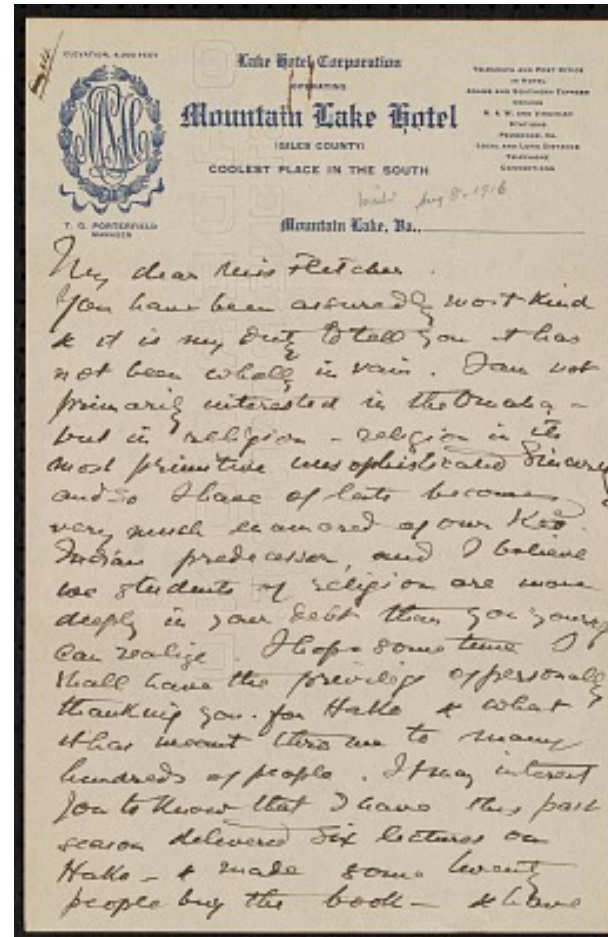 ELEVATION, 4,000 FEET
Lake Hotel Corporation
OPERATING
Mountain Lake Hotel
(GILES COUNTY)
COOLEST PLACE IN THE SOUTH
TELEGRAPH AND POST OFFICE
IN HOTEL
ADAMS AND SOUTHERN EXPRESS
OFFICES
N. & W. AND VIRGINIAN
STATIONS
PEMBROKE, VA.
LOCAL AND LONG DISTANCE
TELEPHONE
CONNECTIONS
T. G. PORTERFIELD
MANAGER
Aug 8, 1916
Mountain Lake, Va.,
My dear Miss Fletcher.
You have been assuredly most kind
& it is my duty to tell you it has
not been wholly in vain. I am not
primarily interested in the Omaha -
but in religion - religion in its
most primitive unsophisticated sincerity
and so I have of late become
very much enamored of our Red
Indian predecessor, and I believe
we students of religion are more
deeply in your debt than you yourself
can realize. I hope some time I
shall have the privilege of personally
thanking you for Hako & what
it has meant thro me to many
hundreds of people. It may interest
you to know that I have this past
season delivered six lectures on
Hako - & made some twenty
people buy the book - & have